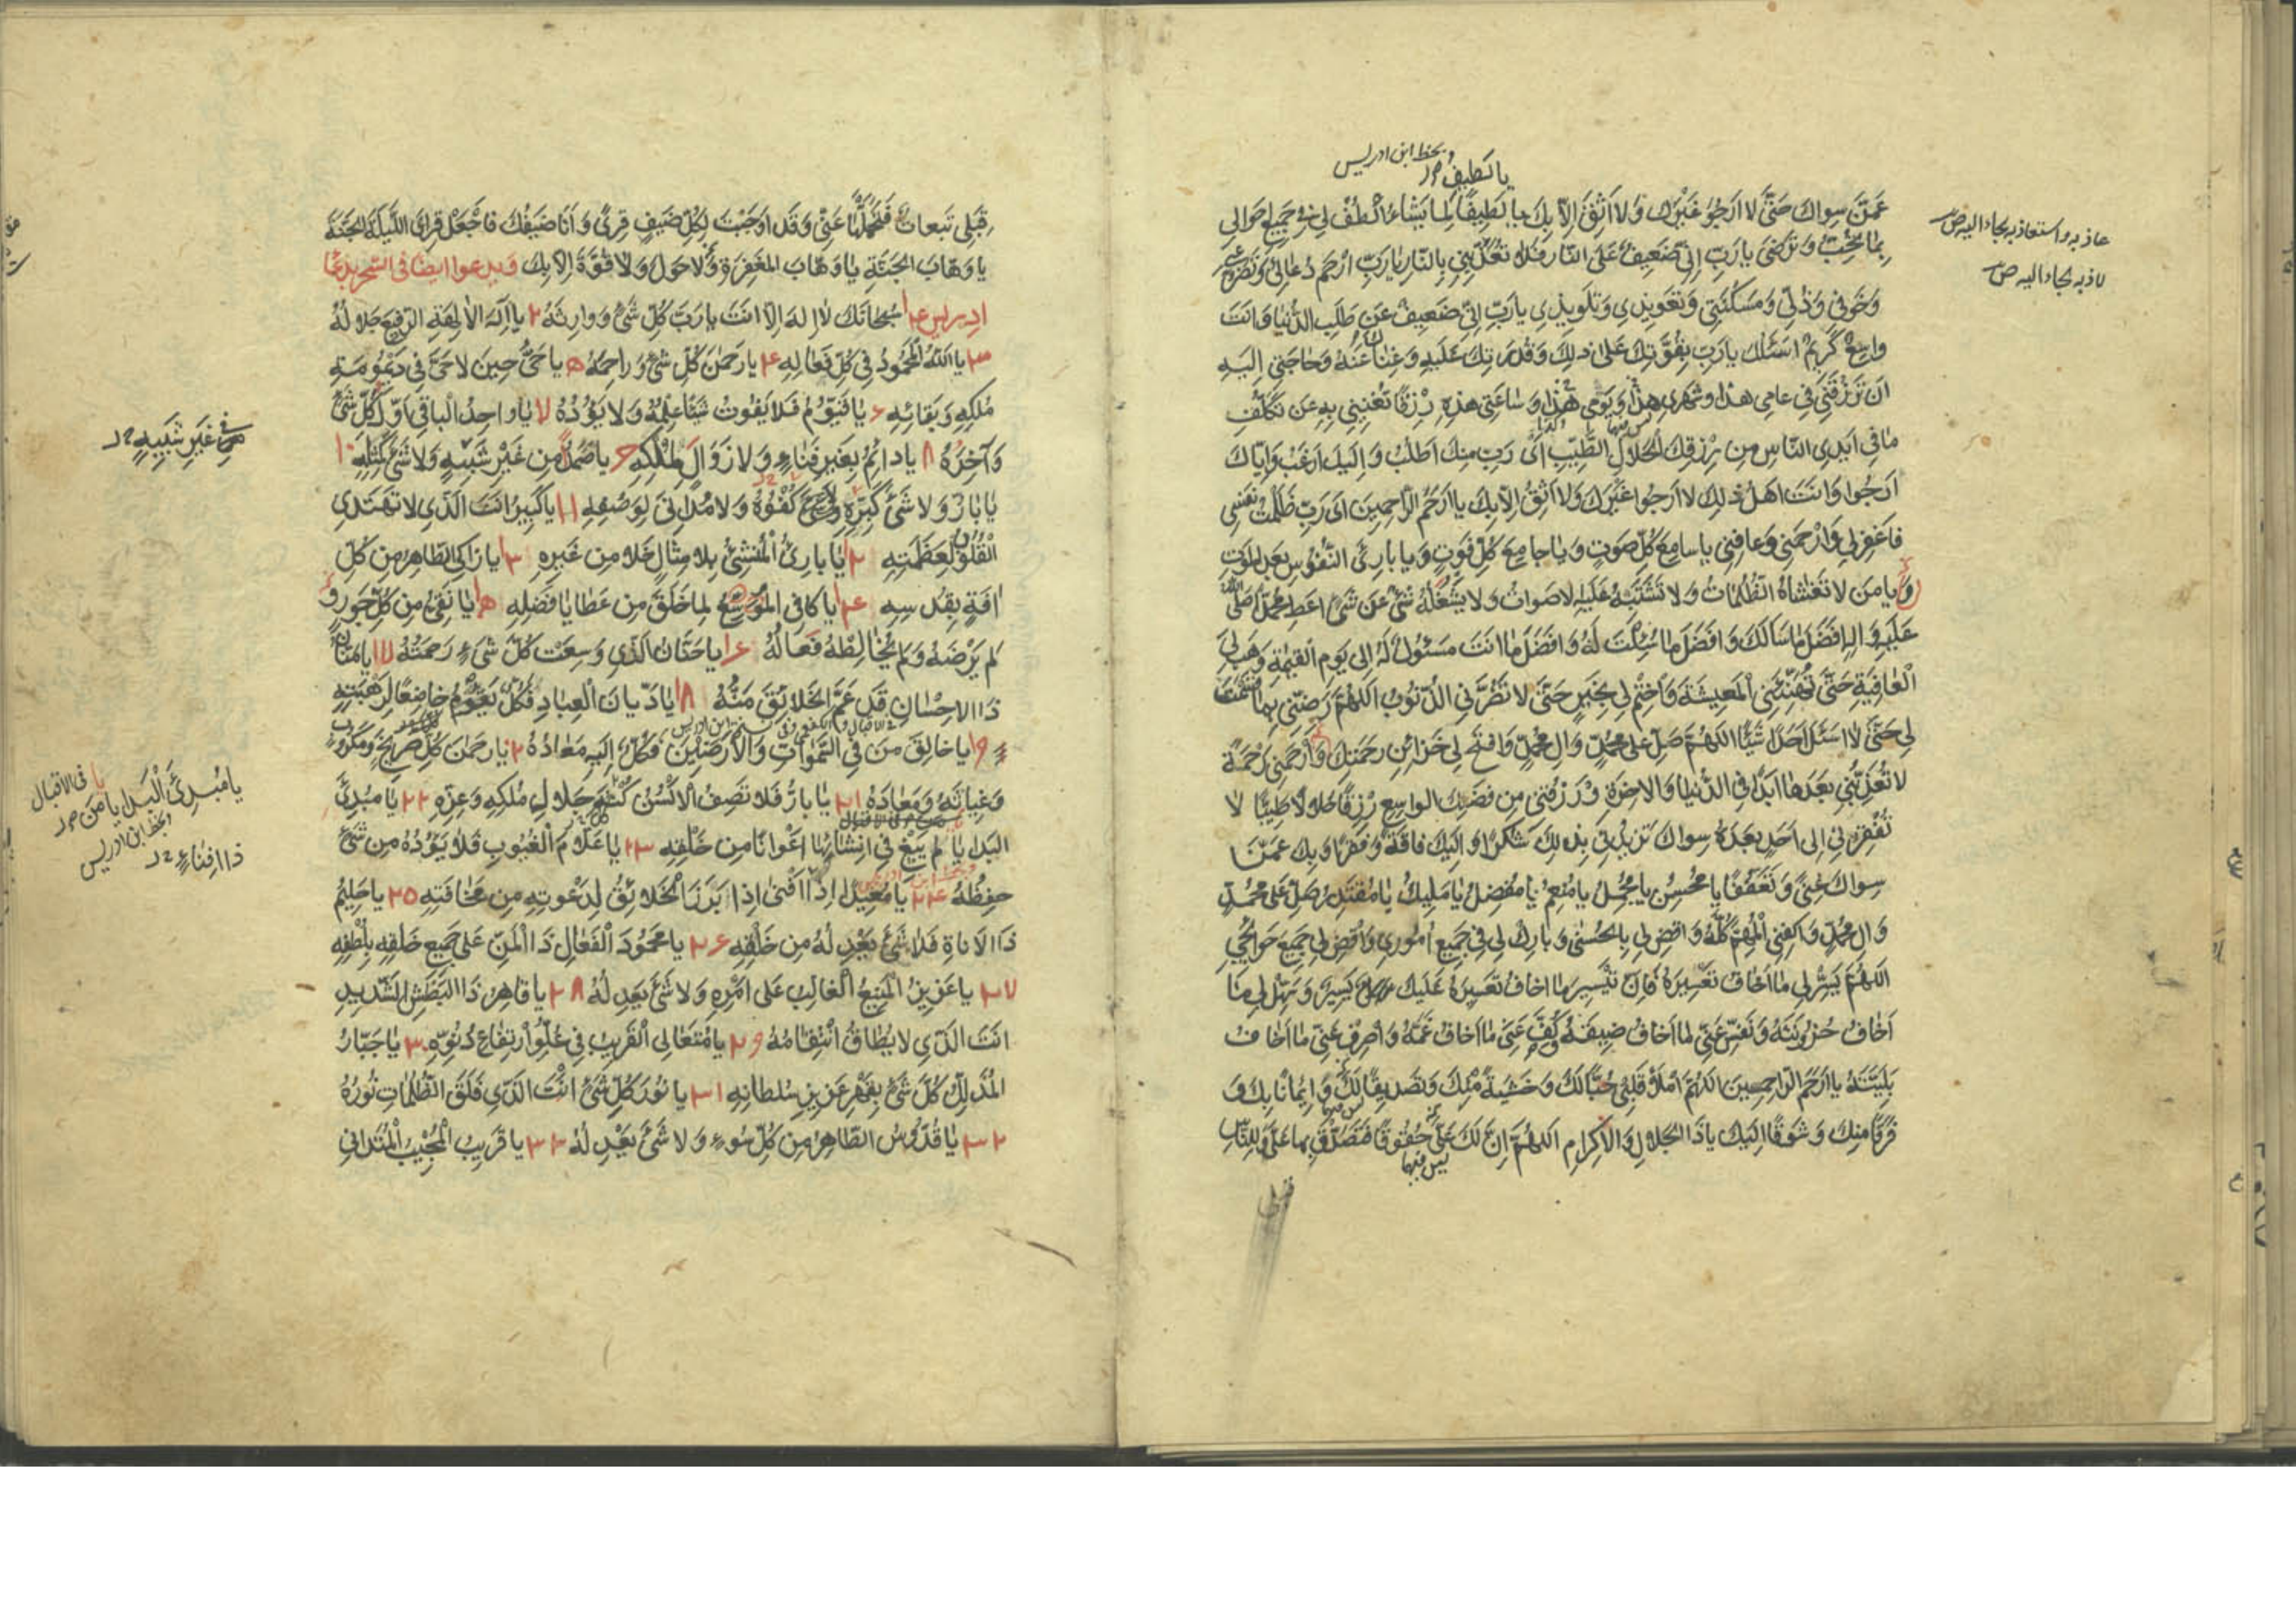 وبخط ابن ادريس
يا لطيف
عَمَّن سِواكَ حَتّى لا اَرجُوَ غَيْرَكَ وَلا اَثِقَ اِلّا بِكَ يا لَطيفًا لِما يَشاءُ اُلْطُفْ لي في جَميعِ اَحوالي
بِما تُحِبُّ وَتَرضى يا رَبِّ اِنّي ضَعيفٌ عَلَى النّارِ فَلا تُعَذِّبْني بِالنّارِ يا رَبِّ ارْحَم دُعائي وَتَضَرُّعي
وَخَوفي وَذُلّي وَمَسكَنَتي وَتَعويذي وَتَلويذي يا رَبِّ اِنّي ضَعيفٌ عَن طَلَبِ الدُّنيا وَاَنتَ
واسِعٌ كَريمٌ اَسئَلُكَ يا رَبِّ بِقُوَّتِكَ عَلى ذلِكَ وَقُدرَتِكَ عَلَيهِ وَغِناكَ عَنهُ وَحاجَتي اِلَيهِ
اَن تَرزُقَني في عامي هذا وَشَهري هذا وَيَومي هذا وَساعَتي هذِهِ رِزقًا تُغنيني بِهِ عَن تَكَلُّفِ
ما في اَيدِي النّاسِ مِن رِزقِكَ الحَلالِ الطَّيِّبِ اَي رَبِّ مِنكَ اَطلُبُ وَاِلَيكَ اَرغَبُ وَاِيّاكَ
اَرجُوا وَاَنتَ اَهلُ ذلِكَ لا اَرجُوا غَيرَكَ وَلا اَثِقُ اِلّا بِكَ يا اَرحَمَ الرّاحِمينَ اَي رَبِّ ظَلَمتُ نَفسي
فَاغفِرلي وَارحَمني وَعافِني يا سامِعَ كُلِّ صَوتٍ وَيا جامِعَ كُلِّ فَوتٍ وَيا بارِئَ النُّفُوسِ بَعدَ المَوتِ
وَيا مَن لا تَغشاهُ الظُّلُماتُ وَلا تَشتَبِهُ عَلَيهِ الاَصواتُ وَلا يَشغَلُهُ شَيءٌ عَن شَيءٍ اَعطِ مُحَمَّدًا صَلَّى اللهُ
عَلَيهِ وَآلِهِ اَفضَلَ ما سَاَلَكَ وَاَفضَلَ ما سُئِلتَ لَهُ وَاَفضَلَ ما اَنتَ مَسئُولٌ لَهُ اِلى يَومِ القِيمَةِ وَهَب لِيَ
العافِيَةَ حَتّى تُهَنِّئَنِي المَعيشَةَ وَاختِم لي بِخَيرٍ حَتّى لا تَضُرَّنِي الذُّنُوبُ اَللّهُمَّ رَضِّني بِما قَسَمتَ
لي حَتّى لا اَسئَلَ اَحَدًا شَيئًا اَللّهُمَّ صَلِّ عَلى مُحَمَّدٍ وَآلِ مُحَمَّدٍ وَافتَح لي خَزائِنَ رَحمَتِكَ وَارحَمني رَحمَةً
لا تُعَذِّبُني بَعدَها اَبَدًا فِي الدُّنيا وَالاخِرَةِ وَارزُقني مِن فَضلِكَ الواسِعِ رِزقًا حَلالًا طَيِّبًا لا
تُفقِرُني اِلى اَحَدٍ بَعدَهُ سِواكَ تَزيدُني بِذلِكَ شُكرًا وَاِلَيكَ فاقَةً وَفَقرًا وَبِكَ عَمَّن
سِواكَ غِنًى وَتَعَفُّفًا يا مُحسِنُ يا مُجمِلُ يا مُنعِمُ يا مُفضِلُ يا مَليكُ يا مُقتَدِرُ صَلِّ عَلى مُحَمَّدٍ
وَآلِ مُحَمَّدٍ وَاكفِنِي المُهِمَّ كُلَّهُ وَاقضِ لي بِالحُسنى وَبارِك لي في جَميعِ اُمُوري وَاقضِ لي جَميعَ حَوائِجي
اَللّهُمَّ يَسِّر لي ما اَخافُ تَعسيرَهُ فَاِنَّ تَيسيرَ ما اَخافُ تَعسيرَهُ عَلَيكَ يَسيرٌ وَسَهِّل لي ما
اَخافُ حُزُونَتَهُ وَنَفِّس عَنّي ما اَخافُ ضيقَهُ وَكُفَّ عَنّي ما اَخافُ غَمَّهُ وَاصرِف عَنّي ما اَخافُ
بَلِيَّتَهُ يا اَرحَمَ الرّاحِمينَ اَللّهُمَّ املَأ قَلبي حُبًّا لَكَ وَخَشيَةً مِنكَ وَتَصديقًا لَكَ وَايمانًا بِكَ وَ
فَرَقًا مِنكَ وَشَوقًا اِلَيكَ يا ذَا الجَلالِ وَالاِكرامِ اَللّهُمَّ اِنَّ لَكَ عَلَيَّ حُقُوقًا فَتَصَدَّق بِها عَلَيَّ وَلِلنّاسِ
ليس فيهما
قبلي
عاذ به واستعاذ به لجاء اليه ص
لاذ به لجاء اليه ص
قِبَلي تَبِعاتٌ فَتَحَمَّلها عَنّي وَقَد اَوجَبتَ لِكُلِّ ضَيفٍ قِرًى وَاَنَا ضَيفُكَ فَاجعَل قِرايَ اللَّيلَةَ الجَنَّةَ
يا وَهّابَ الجَنَّةِ يا وَهّابَ المَغفِرَةِ وَلا حَولَ وَلا قُوَّةَ اِلّا بِكَ ويدعوا ايضا في السحر بدعاء
ادريس ع ١ سُبحانَكَ لا اِلهَ اِلّا اَنتَ يا رَبَّ كُلِّ شَيءٍ وَوارِثَهُ ٢ يا اِلهَ الالِهَةِ الرَّفيعَ جَلالُهُ
٣ يا اَللهُ المَحمُودُ في كُلِّ فَعالِهِ ٤ يا رَحمنَ كُلِّ شَيءٍ وَراحِمَهُ ٥ يا حَيُّ حينَ لا حَيَّ في دَيمُومَةِ
مُلكِهِ وَبَقائِهِ ٦ يا قَيُّومُ فَلا يَفُوتُ شَيئًا عِلمُهُ وَلا يَؤُدُهُ ٧ يا واحِدُ الباقي اَوَّلَ كُلِّ شَيءٍ
وَآخِرَهُ ٨ يا دائِمُ بِغَيرِ فَناءٍ وَلا زَوالَ لِمُلكِهِ ٩ يا صَمَدُ مِن غَيرِ شَبيهٍ وَلا شَيءَ كَمِثلِهِ ١٠
يا بارُّ وَلا شَيءَ كُفوُهُ وَلا مُدانِيَ لِوَصفِهِ ١١ يا كَبيرُ اَنتَ الَّذي لا تَهتَدِي
القُلُوبُ لِعَظَمَتِهِ ١٢ يا بارِئُ المُنشِئُ بِلا مِثالٍ خَلا مِن غَيرِهِ ١٣ يا زاكِي الطّاهِرُ مِن كُلِّ
افَةٍ بِقُدسِهِ ١٤ يا كافِي المُوَسِّعُ لِما خَلَقَ مِن عَطايا فَضلِهِ ١٥ يا نَقِيُّ مِن كُلِّ جَورٍ وَ
لَم يَرضَهُ وَلَم يُخالِطهُ فَعالُهُ ١٦ يا حَنّانُ الَّذي وَسِعَت كُلَّ شَيءٍ رَحمَتُهُ ١٧ يا مَنّانُ
ذَا الاِحسانِ قَد عَمَّ الخَلائِقَ مَنُّهُ ١٨ يا دَيّانَ العِبادِ فَكُلٌّ يَقُومُ خاضِعًا لِرَهبَتِهِ
١٩ يا خالِقَ مَن فِي السَّمواتِ وَالاَرَضينَ فَكُلٌّ اِلَيهِ مَعادُهُ ٢٠ يا رَحمنَ كُلِّ صَريخٍ وَمَكرُوبٍ
وَغِياثَهُ وَمَعاذَهُ ٢١ يا بارُّ فَلا تَصِفُ الاَلسُنُ كُنهَ جَلالِ مُلكِهِ وَعِزِّهِ ٢٢ يا مُبدِئَ
البَدايا لَم يَبغِ في اِنشائِها اَعوانًا مِن خَلقِهِ ٢٣ يا عَلّامَ الغُيُوبِ فَلا يَؤُدُهُ مِن شَيءٍ
حِفظُهُ ٢٤ يا مُعيدًا اِذا اَفنى اِذا بَرَزَ الخَلائِقُ لِدَعوَتِهِ مِن مَخافَتِهِ ٢٥ يا حَليمُ
ذَا الاَناةِ فَلا شَيءَ يَعدِلُهُ مِن خَلقِهِ ٢٦ يا مَحمُودَ الفَعالِ ذَا المَنِّ عَلى جَميعِ خَلقِهِ بِلُطفِهِ
٢٧ يا عَزيزُ المَنيعُ الغالِبُ عَلى اَمرِهِ وَلا شَيءَ يَعدِلُهُ ٢٨ يا قاهِرُ ذَا البَطشِ الشَّديدِ
اَنتَ الَّذي لا يُطاقُ انتِقامُهُ ٢٩ يا مُتَعالِي القَريبُ في عُلُوِّ ارتِفاعِ دُنُوِّهِ ٣٠ يا جَبّارُ
المُذَلِّلُ كُلَّ شَيءٍ بِقَهرِ عَزيزِ سُلطانِهِ ٣١ يا نُورَ كُلِّ شَيءٍ اَنتَ الَّذي فَلَقَ الظُّلُماتِ نُورُهُ
٣٢ يا قُدُّوسُ الطّاهِرُ مِن كُلِّ سُوءٍ وَلا شَيءَ يَعدِلُهُ ٣٣ يا قَريبُ المُجيبُ المُتَدانِي
في غَيرِ شَبيهٍ
يا في الاقبال
يا مُبدِئَ البَدايا مَن
وبخط ابن ادريس
ذا افناء